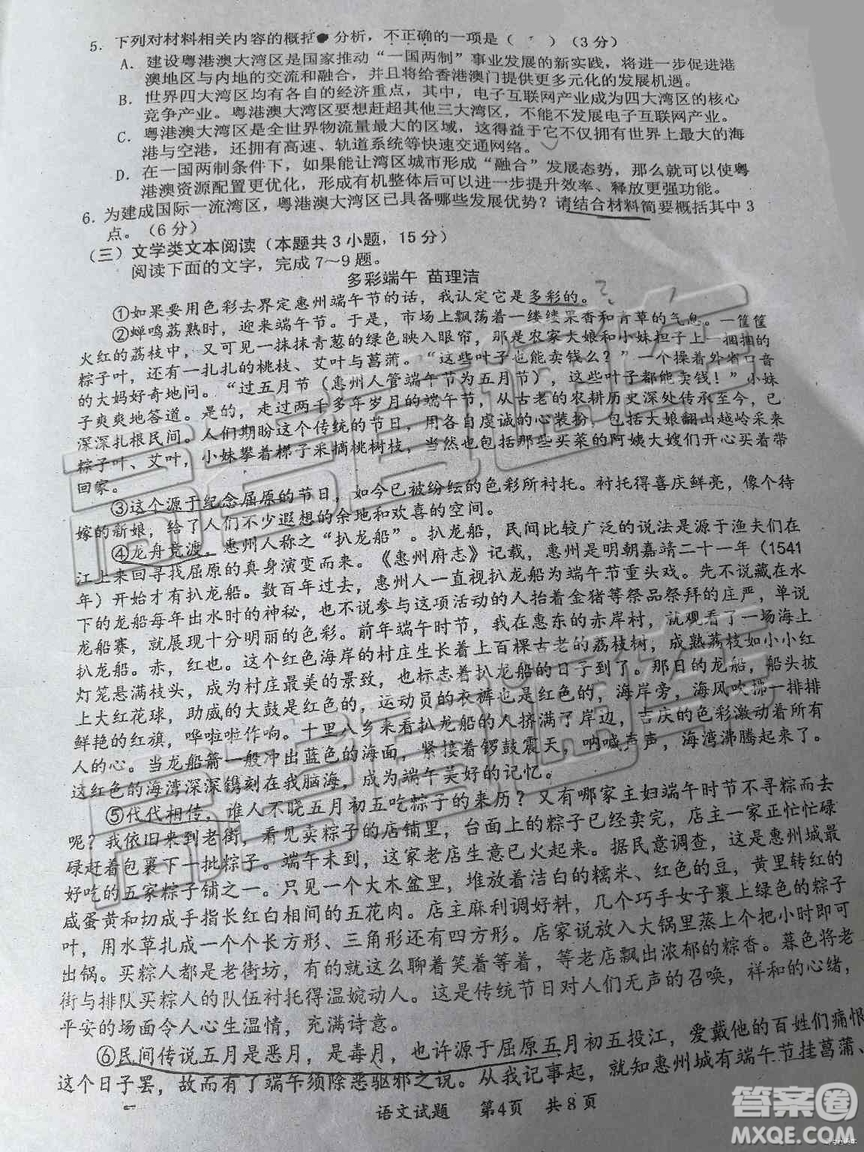 5．下列对材料相关内容的概括 分析，不正确的一项是（ ）（3分）
A．建设粤港澳大湾区是国家推动“一国两制”事业发展的新实践，将进一步促进港
澳地区与内地的交流和融合，并且将给香港澳门提供更多元化的发展机遇。
B．世界四大湾区均有各自的经济优势，其中，电子互联网产业成为四大湾区的核心
竞争产业。粤港澳大湾区要想赶超其他三大湾区，不能不发展电子互联网产业。
C．粤港澳大湾区是全世界物流量最大的区域，这得益于它不仅拥有世界上最大的海
港与空港，还拥有高速、轨道系统等快速交通网络。
D．在一国两制条件下，如果能让湾区城市形成“融合”发展态势，那么就可以使粤
港澳资源配置更优化，形成有机整体后可以进一步提升效率、释放更强功能。
6．为建成国际一流湾区，粤港澳大湾区已具备哪些发展优势？请结合材料简要概括其中3
点。（6分）
（三）文学类文本阅读（本题共3小题，15分）
阅读下面的文字，完成7～9题。
多彩端午 苗理洁
①如果要用色彩去界定惠州端午节的话，我认定它是多彩的。
②蝉鸣荔熟时，迎来端午节。于是，市场上飘荡着一缕缕果香和青草的气息。一筐筐
火红的荔枝中，又可见一抹抹青葱的绿色映入眼帘，那是农家大娘和小妹担子上一捆捆的
粽子叶，还有一扎扎的桃枝、艾叶与菖蒲。“这些叶子也能卖钱么？”一个操着外省口音
的大妈好奇地问。“过五月节（惠州人管端午节为五月节），这些叶子都能卖钱！”小妹
子爽爽地答道。是的，走过两千多年岁月的端午节，从古老的农耕历史深处传承至今，已
深深扎根民间。人们期盼这个传统的节日，用各自虔诚的心装扮，包括大娘翻出越岭采来
粽子叶、艾叶，小妹攀着梯子采摘桃树枝，当然也包括那些买菜的阿姨大嫂们开心买着带
回家。
③这个源于纪念屈原的节日，如今已被纷纭的色彩所衬托。衬托得喜庆鲜亮，像个待
嫁的新娘，给了人们不少遐想的余地和欢喜的空间。
④龙舟竞渡，惠州人称之“扒龙船”。扒龙船，民间比较广泛的说法是源于渔夫们在
江上来回寻找屈原的真身演变而来。《惠州府志》记载，惠州是明朝嘉靖二十一年（1541
年）开始才有扒龙船。数百年过去，惠州人一直视扒龙船为端午节重头戏。先不说藏在水
下的龙船每年出水时的神秘，也不说参与这项活动的人抬着金猪等祭品祭拜的庄严，单说
龙船赛，就展现十分明丽的色彩。前年端午时节，我在惠东的赤岸村，就观看了一场海上
扒龙船。赤，红也。这个红色海岸的村庄生长着上百棵古老的荔枝树，成熟荔枝如小小红
灯笼是满枝头，成为村庄最美的景致，也标志着扒龙船的日子到了。那日的龙船，船头披
上大红花球，助威的大鼓是红色的，运动员的衣裤也是红色的，海岸旁，海风吹拂一排排
鲜艳的红旗，哗啦啦作响。十里八乡来看扒龙船的人挤满了岸边，吉庆的色彩激动着所有
人的心。当龙船箭一般冲出蓝色的海面，紧接着锣鼓震天，呐喊声声，海湾沸腾起来了。
这红色的海湾深深镌刻在我脑海，成为端午美好的记忆。
⑤代代相传，谁人不晓五月初五吃粽子的来历？又有哪家主妇端午时节不寻粽而去
呢？我依旧来到老街，看见卖粽子的店铺里，台面上的粽子已经卖完，店主一家正忙忙碌
碌赶着包裹下一批粽子。端午未到，这家老店生意已火起来。据民意调查，这是惠州城最
好吃的五家粽子铺之一。只见一个大木盆里，堆放着洁白的糯米、红色的豆，黄里转红的
咸蛋黄和切成手指长红白相间的五花肉。店主麻利调好料，几个巧手女子裹上绿色的粽子
叶，用水草扎成一个个长方形、三角形还有四方形。店家说放入大锅里蒸上个把小时即可
出锅。买粽人都是老街坊，有的就这么聊着笑着等着，等老店飘出浓郁的粽香。暮色将老
街与排队买粽人的队伍衬托得温婉动人。这是传统节日对人们无声的召唤，祥和的心绪，
平安的场面令人心生温情，充满诗意。
⑥民间传说五月是恶月，是毒月，也许源于屈原五月初五投江，爱戴他的百姓们痛恨
这个日子罢，故而有了端午须除恶驱邪之说。从我记事起，就知惠州城有端午节挂菖蒲、
语文试题 第4页 共8页
答案圈
MXQE.COM